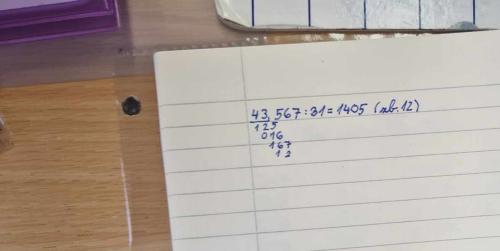 43,567:31=1405 (zb.12)
125
016
167
12